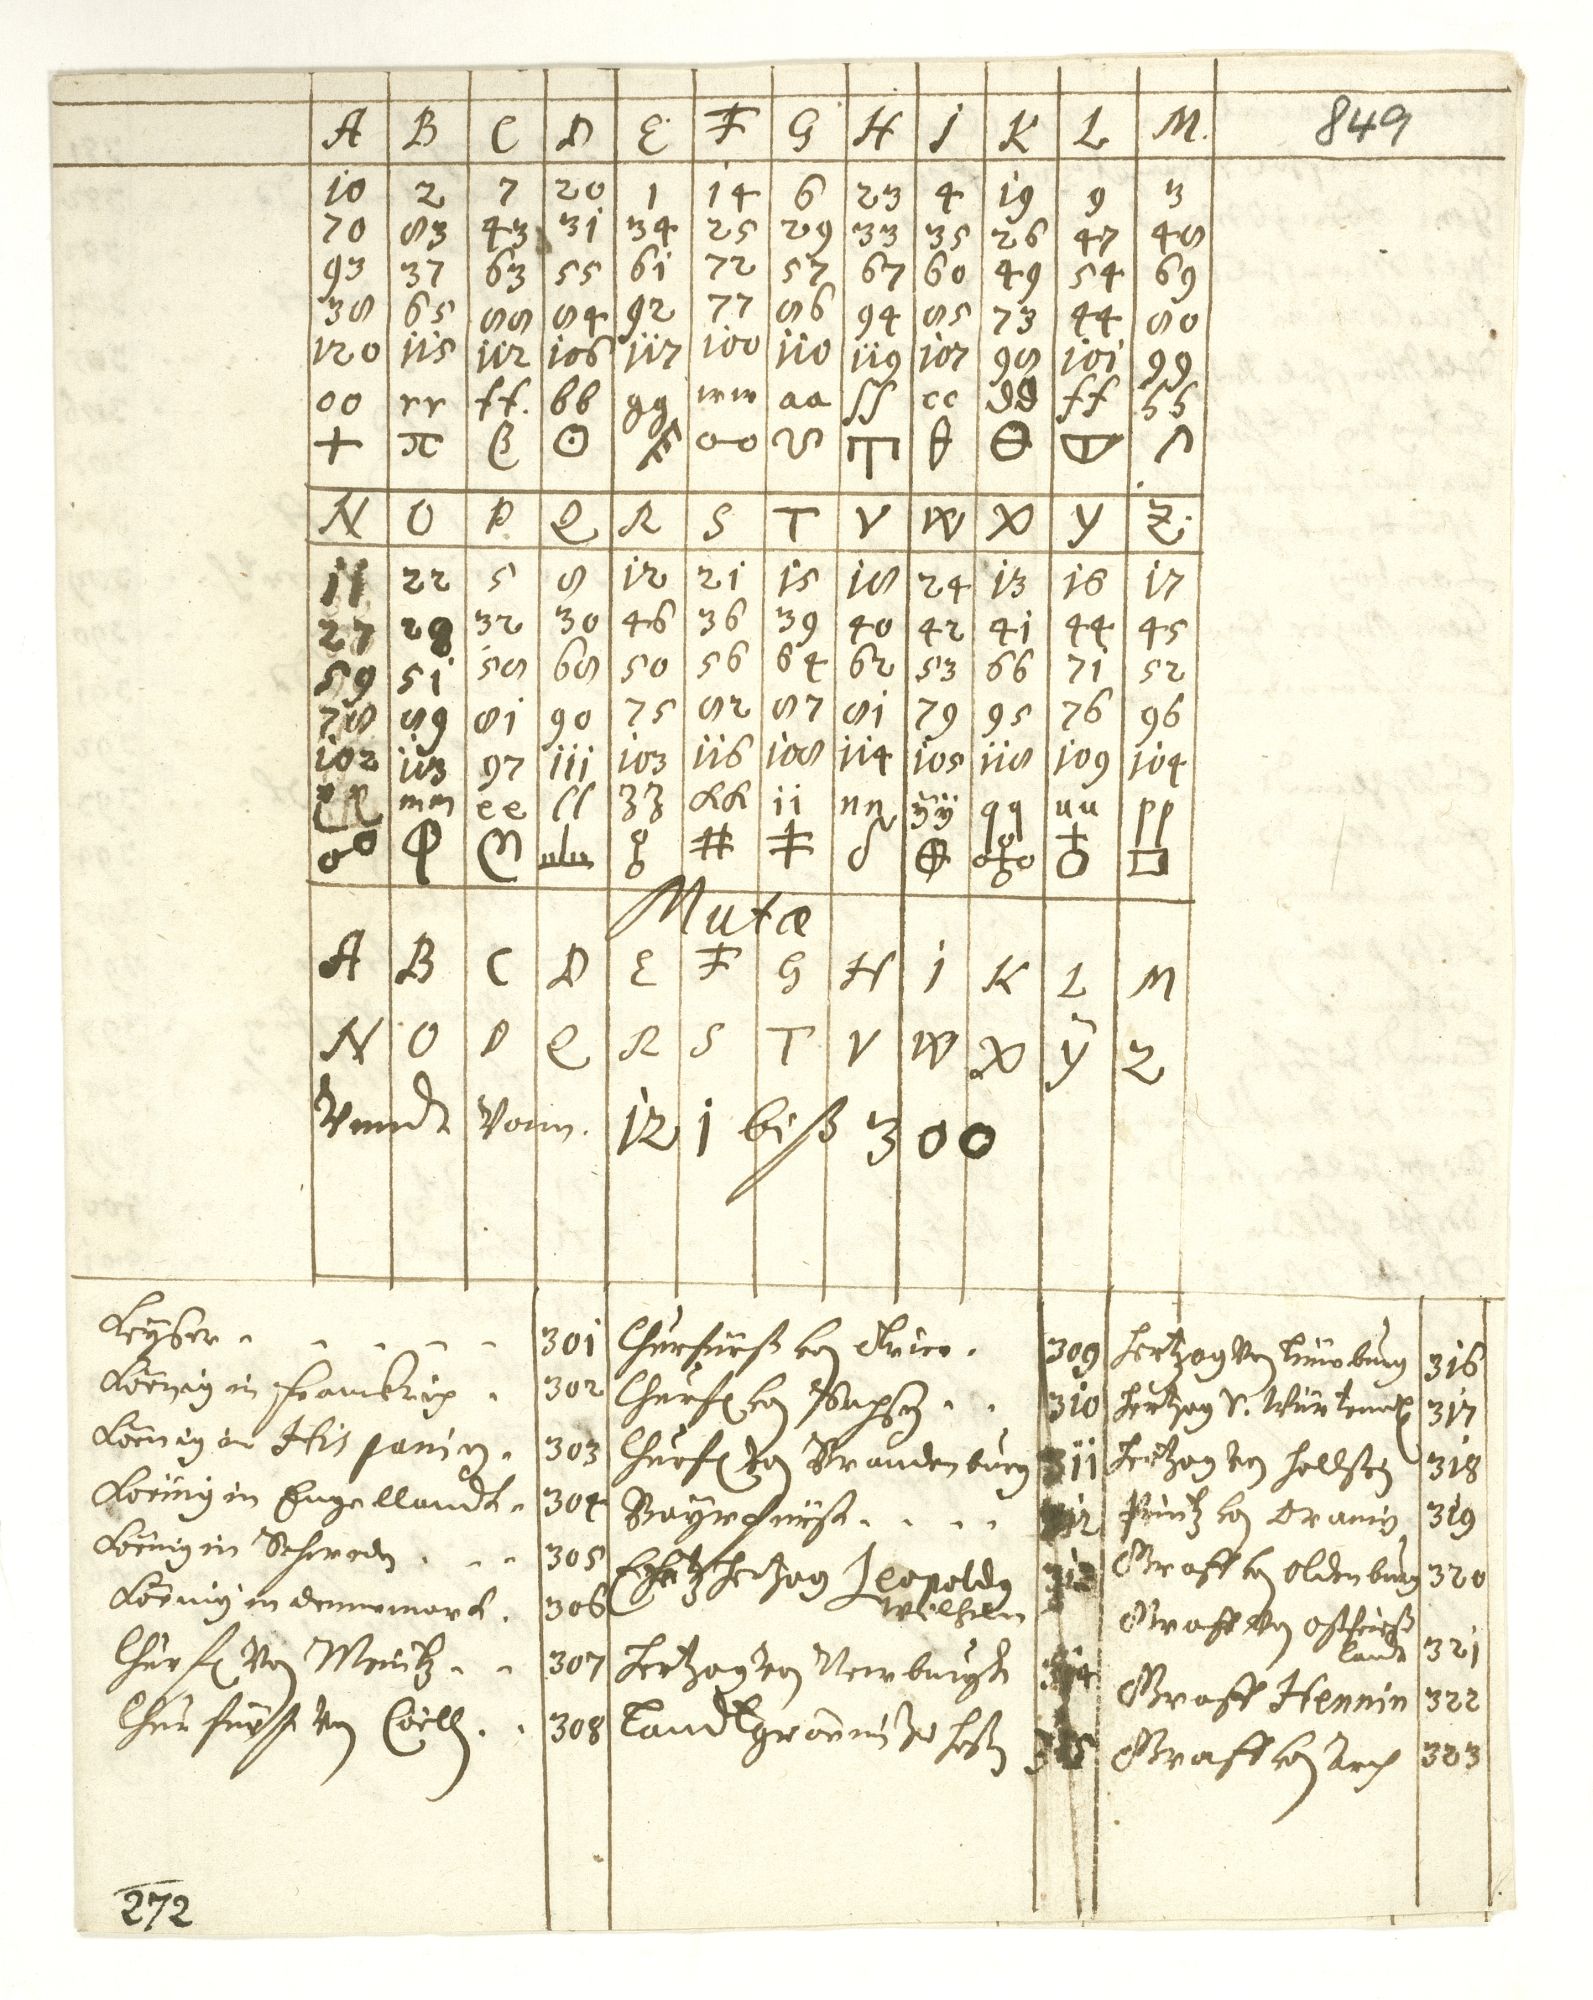 849
A B C D E F G H I K L M.
10 2 7 20 1 14 6 23 4 19 9 3
70 83 43 31 34 25 29 33 35 26 47 48
93 37 63 55 61 72 57 67 60 49 54 69
38 65 88 84 92 77 86 94 85 73 44 80
120 115 112 106 117 100 110 119 107 98 101 99
oo rr ff. bb gg ww aa ſſ cc dd ff hh
N O P Q R S T V W X Y Z.
11 22 5 8 12 21 15 18 24 13 16 17
27 28 32 30 46 36 39 40 42 41 44 45
59 51 58 68 50 56 64 62 53 66 71 52
78 89 81 90 75 82 87 81 79 95 76 96
102 113 97 111 103 116 108 114 105 118 109 104
mm ee ll zz kk ii nn ÿÿ qq uu pp
Mutæ
A B C D E F G H I K L M
N O P Q R S T V W X Y Z
Vnndt Vonn. 121 biß 300
Keÿser 301
Koenig in Franckrich 302
Koenig in Hispanien 303
Koenig in Engellandt 304
Koenig in Schweden 305
Koenig in dennemarck 306
Churf Von Meintz 307
Churfürst Von Cölln 308
Churfürst von Trier 309
Churf von Sachsen 310
Churf Von Brandenburg 311
Bayrfürst 312
Ertzhertzog Leopoldg
Wilhelm 313
Hertzog von Newburgk 314
Landtgräffin zu Hessen 315
Hertzog Von Lüneburg 316
Hertzog V. Würtemb 317
Hertzog von Hollstein 318
Printz von Oranien 319
Graff von Oldenburg 320
Graff Von Ostfrieß
landt 321
Graff Hennin 322
Graff von 323
272